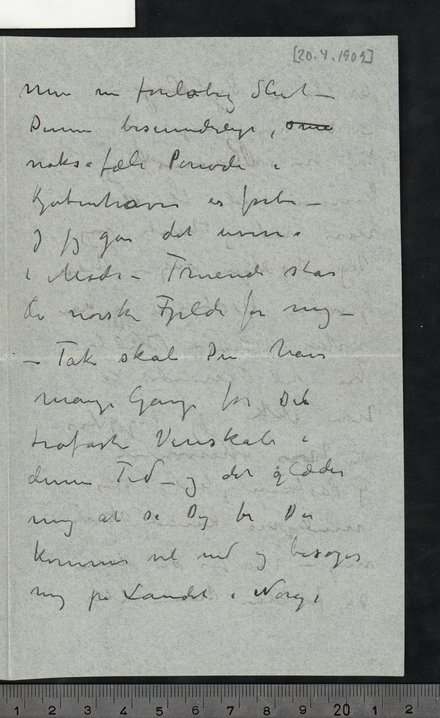 [20.4.1909]
nu en foreløbig Slut –
Denne besynderlige,
nok så fæle Periode i
Kjøbenhavn er forbi –
går det
i Møde – Truende står
de norske Fjelde for mig –
– Tak skal Du have
mange Gange for Dit
trofaste Venskab i
denne Tid – og det glæder
mig at se Dig for Du
kommer vel ned og besøger
mig på Landet i Norge,
1 2 3 4 5 6 7 8 9 20 1 2